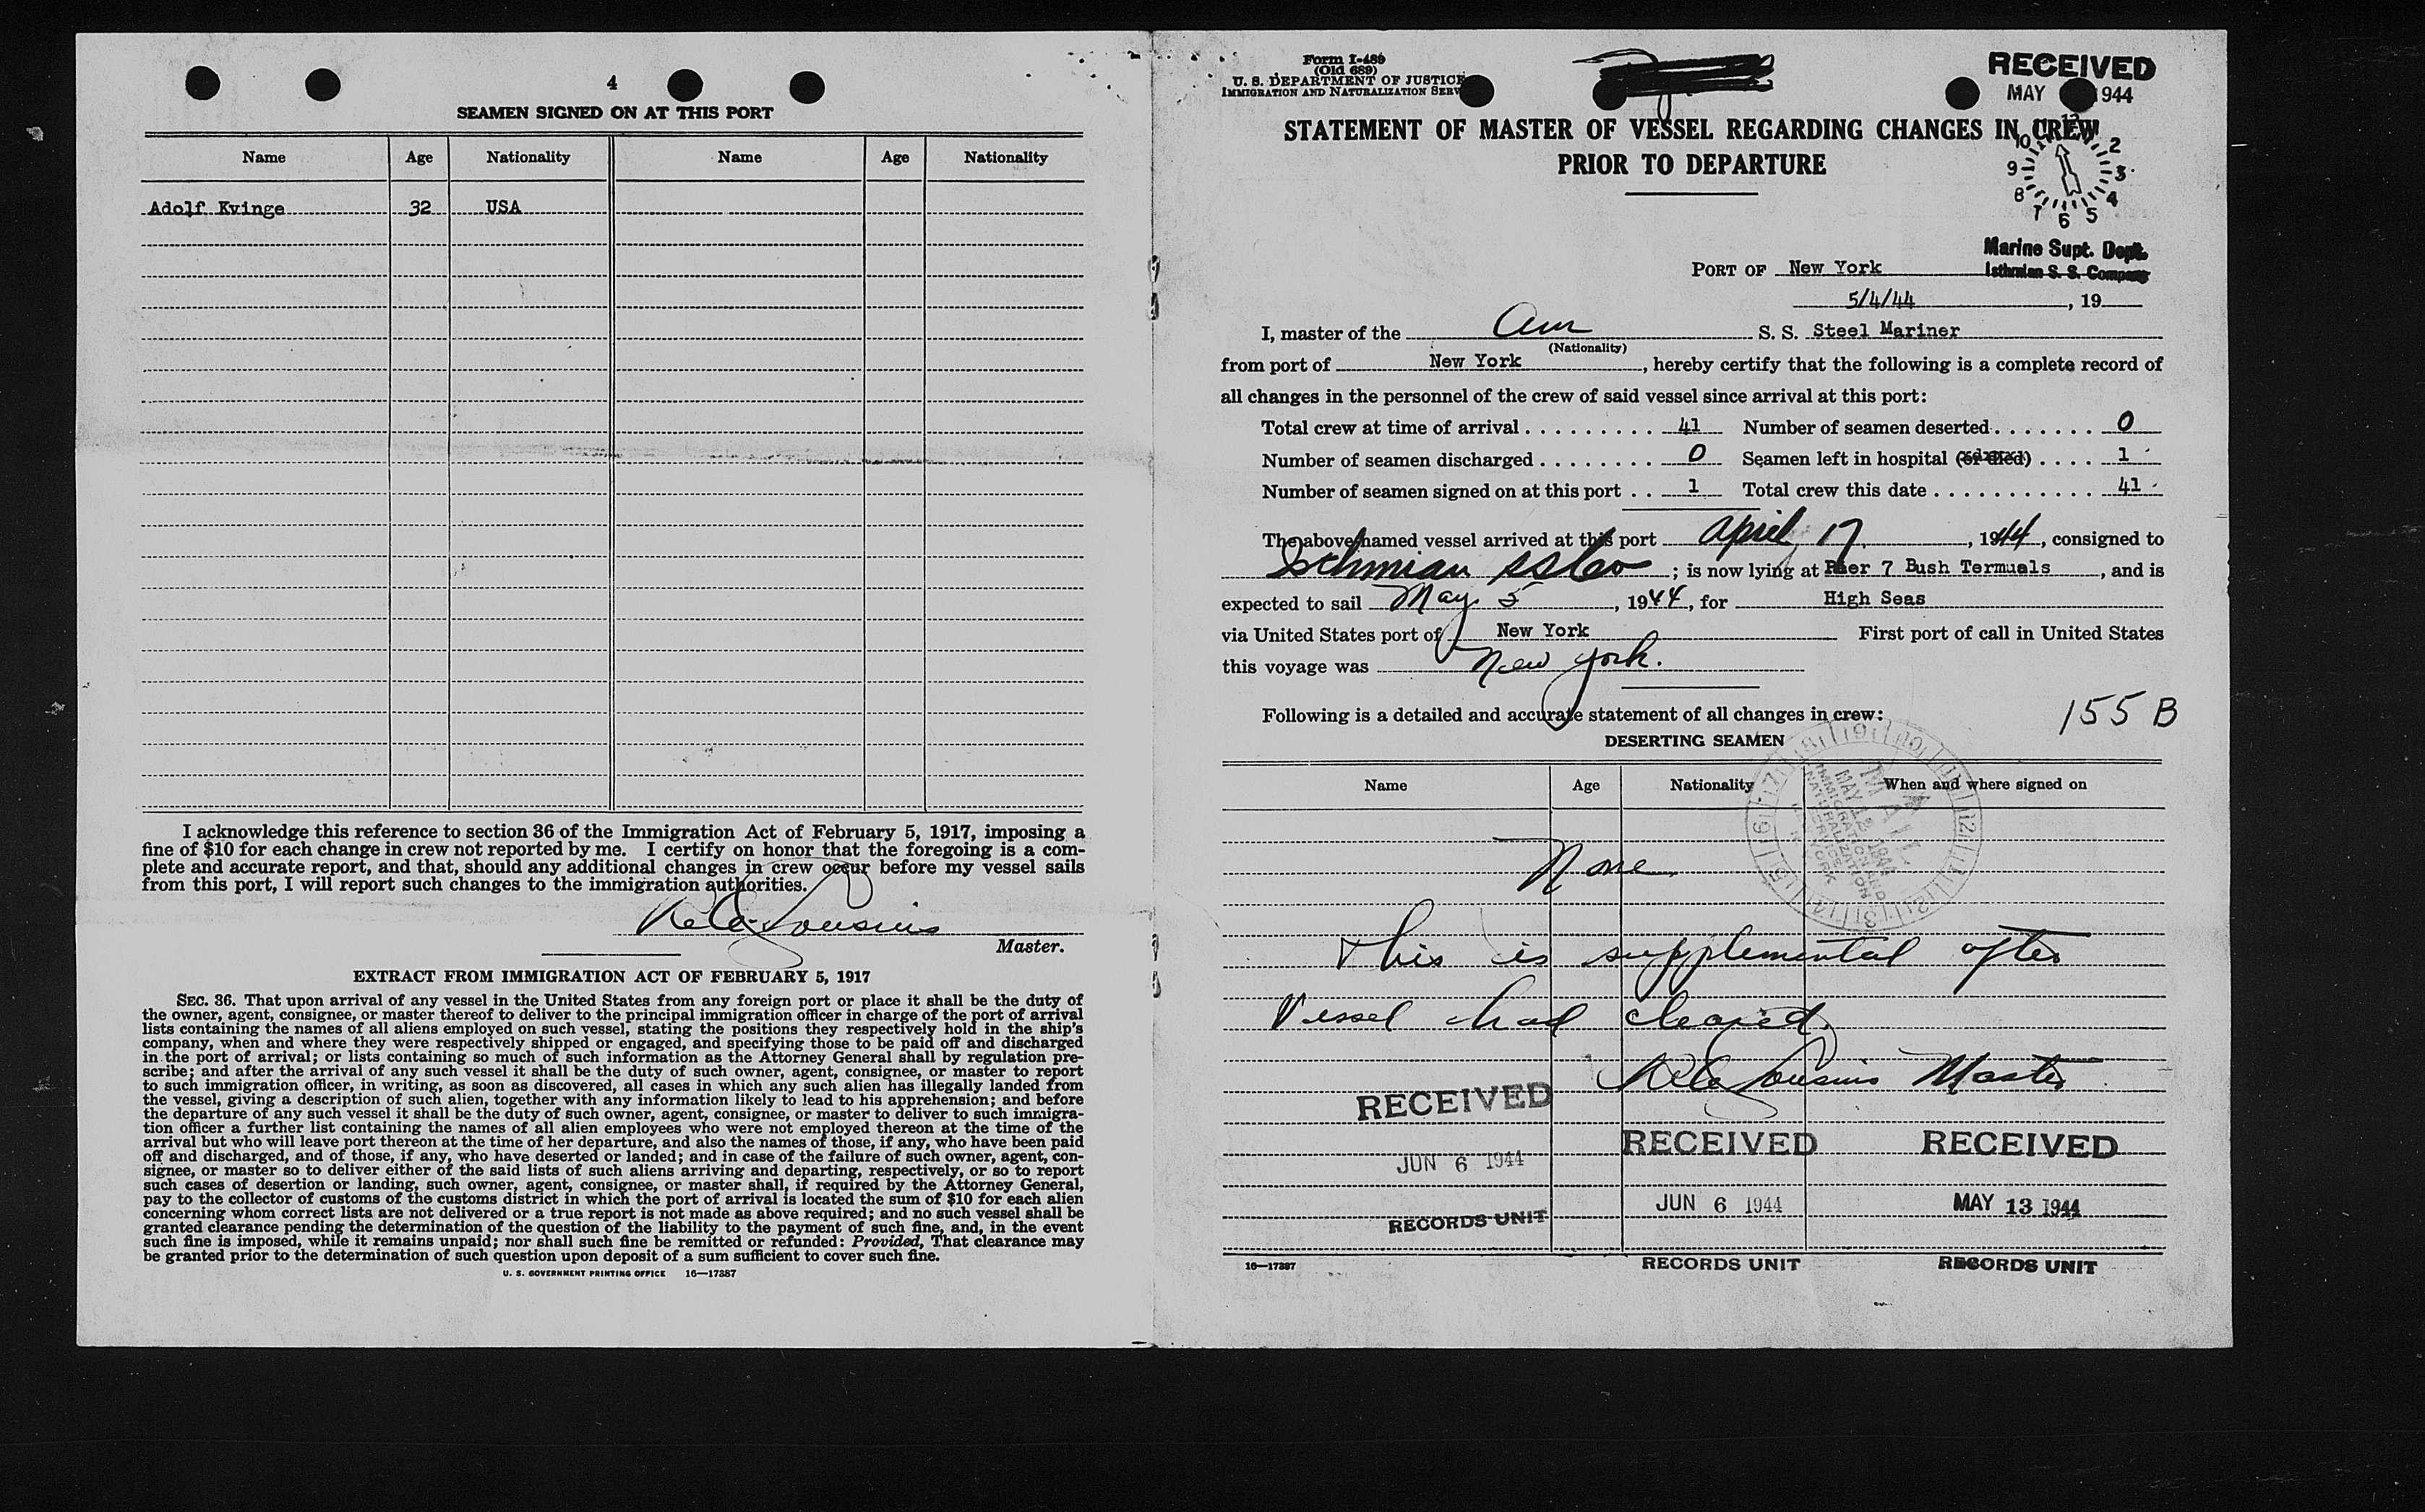 4
SEAMEN SIGNED ON AT THIS PORT
Name Age Nationality Name Age Nationality
Adolf Kvinge 32 USA
I acknowledge this reference to section 36 of the Immigration Act of February 5, 1917, imposing a
fine of $10 for each change in crew not reported by me. I certify on honor that the foregoing is a com-
plete and accurate report, and that, should any additional changes in crew occur before my vessel sails
from this port, I will report such changes to the immigration authorities.
Master.
EXTRACT FROM IMMIGRATION ACT OF FEBRUARY 5, 1917
SEC. 36. That upon arrival of any vessel in the United States from any foreign port or place it shall be the duty of
the owner, agent, consignee, or master thereof to deliver to the principal immigration officer in charge of the port of arrival
lists containing the names of all aliens employed on such vessel, stating the positions they respectively hold in the ship's
company, when and where they were respectively shipped or engaged, and specifying those to be paid off and discharged
in the port of arrival; or lists containing so much of such information as the Attorney General shall by regulation pre-
scribe; and after the arrival of any such vessel it shall be the duty of such owner, agent, consignee, or master to report
to such immigration officer, in writing, as soon as discovered, all cases in which any such alien has illegally landed from
the vessel, giving a description of such alien, together with any information likely to lead to his apprehension; and before
the departure of any such vessel it shall be the duty of such owner, agent, consignee, or master to deliver to such immigra-
tion officer a further list containing the names of all alien employees who were not employed thereon at the time of the
arrival but who will leave port thereon at the time of her departure, and also the names of those, if any, who have been paid
off and discharged, and of those, if any, who have deserted or landed; and in case of the failure of such owner, agent, con-
signee, or master so to deliver either of the said lists of such aliens arriving and departing, respectively, or so to report
such cases of desertion or landing, such owner, agent, consignee, or master shall, if required by the Attorney General,
pay to the collector of customs of the customs district in which the port of arrival is located the sum of $10 for each alien
concerning whom correct lists are not delivered or a true report is not made as above required; and no such vessel shall be
granted clearance pending the determination of the question of the liability to the payment of such fine, and, in the event
such fine is imposed, while it remains unpaid; nor shall such fine be remitted or refunded: Provided, That clearance may
be granted prior to the determination of such question upon deposit of a sum sufficient to cover such fine.
U. S. GOVERNMENT PRINTING OFFICE 16—17387
Form I-489
(Old 689)
U. S. DEPARTMENT OF JUSTICE
IMMIGRATION AND NATURALIZATION SERV
RECEIVED
MAY 1944
STATEMENT OF MASTER OF VESSEL REGARDING CHANGES IN CREW
PRIOR TO DEPARTURE
12 2 3 4 5 6 7 8 9 10
Marine Supt. Dept.
Isthmian S. S. Company
PORT OF New York
5/4/44, 19
I, master of the Am S. S. Steel Mariner
(Nationality)
from port of New York, hereby certify that the following is a complete record of
all changes in the personnel of the crew of said vessel since arrival at this port:
Total crew at time of arrival 41 Number of seamen deserted 0
Number of seamen discharged 0 Seamen left in hospital (or died) 1
Number of seamen signed on at this port 1 Total crew this date 41
The above named vessel arrived at this port April 17, 1944, consigned to
Isthmian SS Co; is now lying at Pier 7 Bush Termuals, and is
expected to sail May 5, 1944, for High Seas
via United States port of New York First port of call in United States
this voyage was New York.
155 B
Following is a detailed and accurate statement of all changes in crew:
DESERTING SEAMEN
Name Age Nationality When and where signed on
MAIL
MAY 12 1944
IMMIGRATION AND
NATURALIZATION
SERVICE
None
This is supplemental after
Vessel had cleared.
Master
RECEIVED
JUN 6 1944
RECORDS UNIT
RECEIVED
JUN 6 1944
RECORDS UNIT
RECEIVED
MAY 13 1944
RECORDS UNIT
16—17387